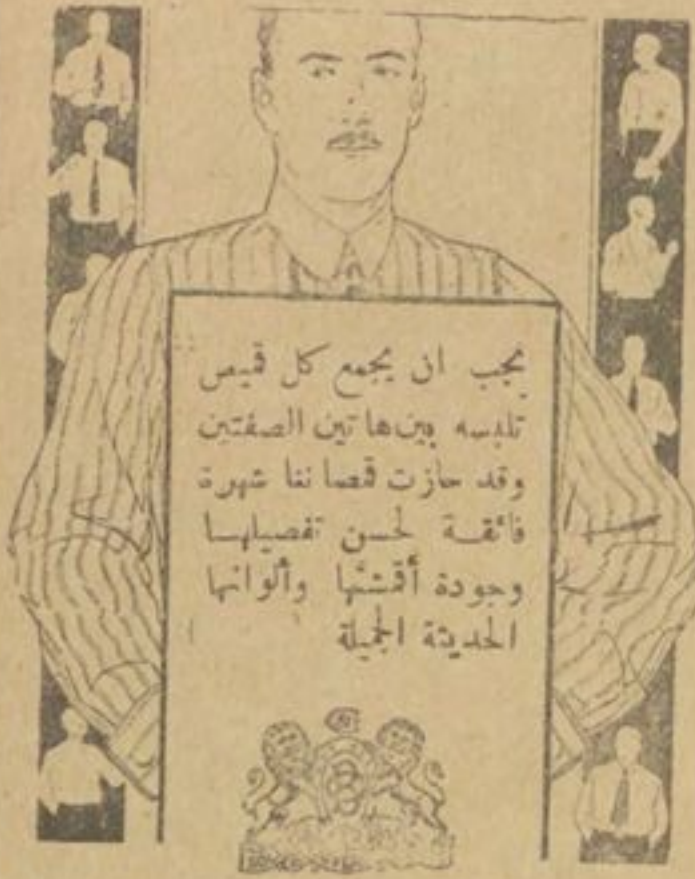 يجب ان يجمع كل قميص
تلبسه بين هاتين الصفتين
وقد حازت قمصاننا شهرة
فائقة لحسن تفصيلها
وجودة أقمشتها وألوانها
الحديثة الجميلة